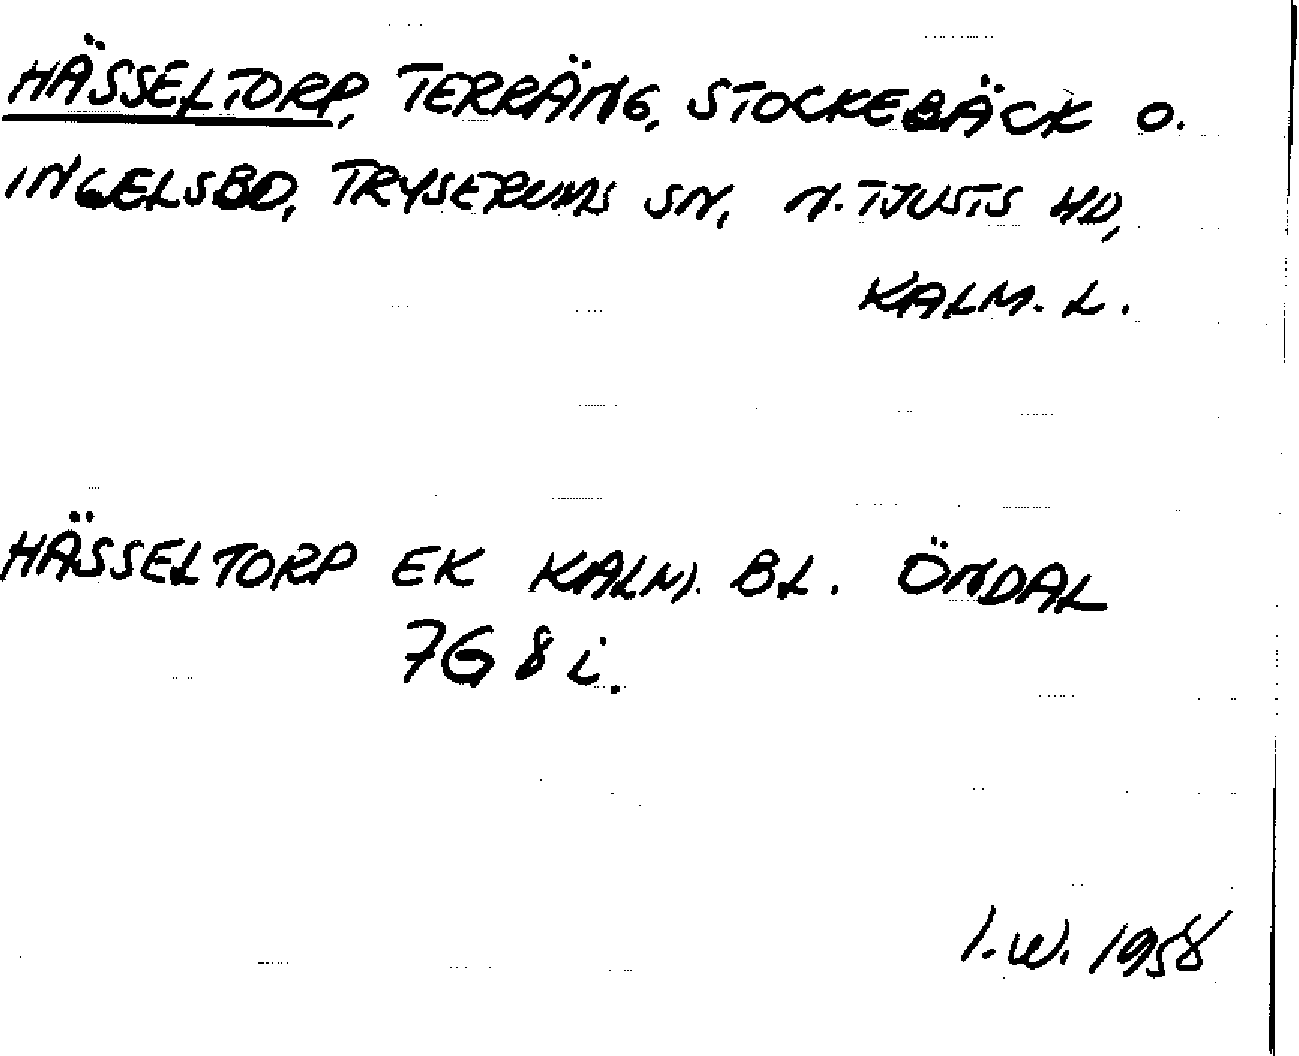 HÄSSELTORP, TERRÄNG, STOCKEBÄCK O.
INGELSBO, TRYSERUMS SN, N. TJUSTS HD,
KALM. L.
HÄSSELTORP EK KALM. BL. ÖNDAL
7G 8 i.
I. W. 1958